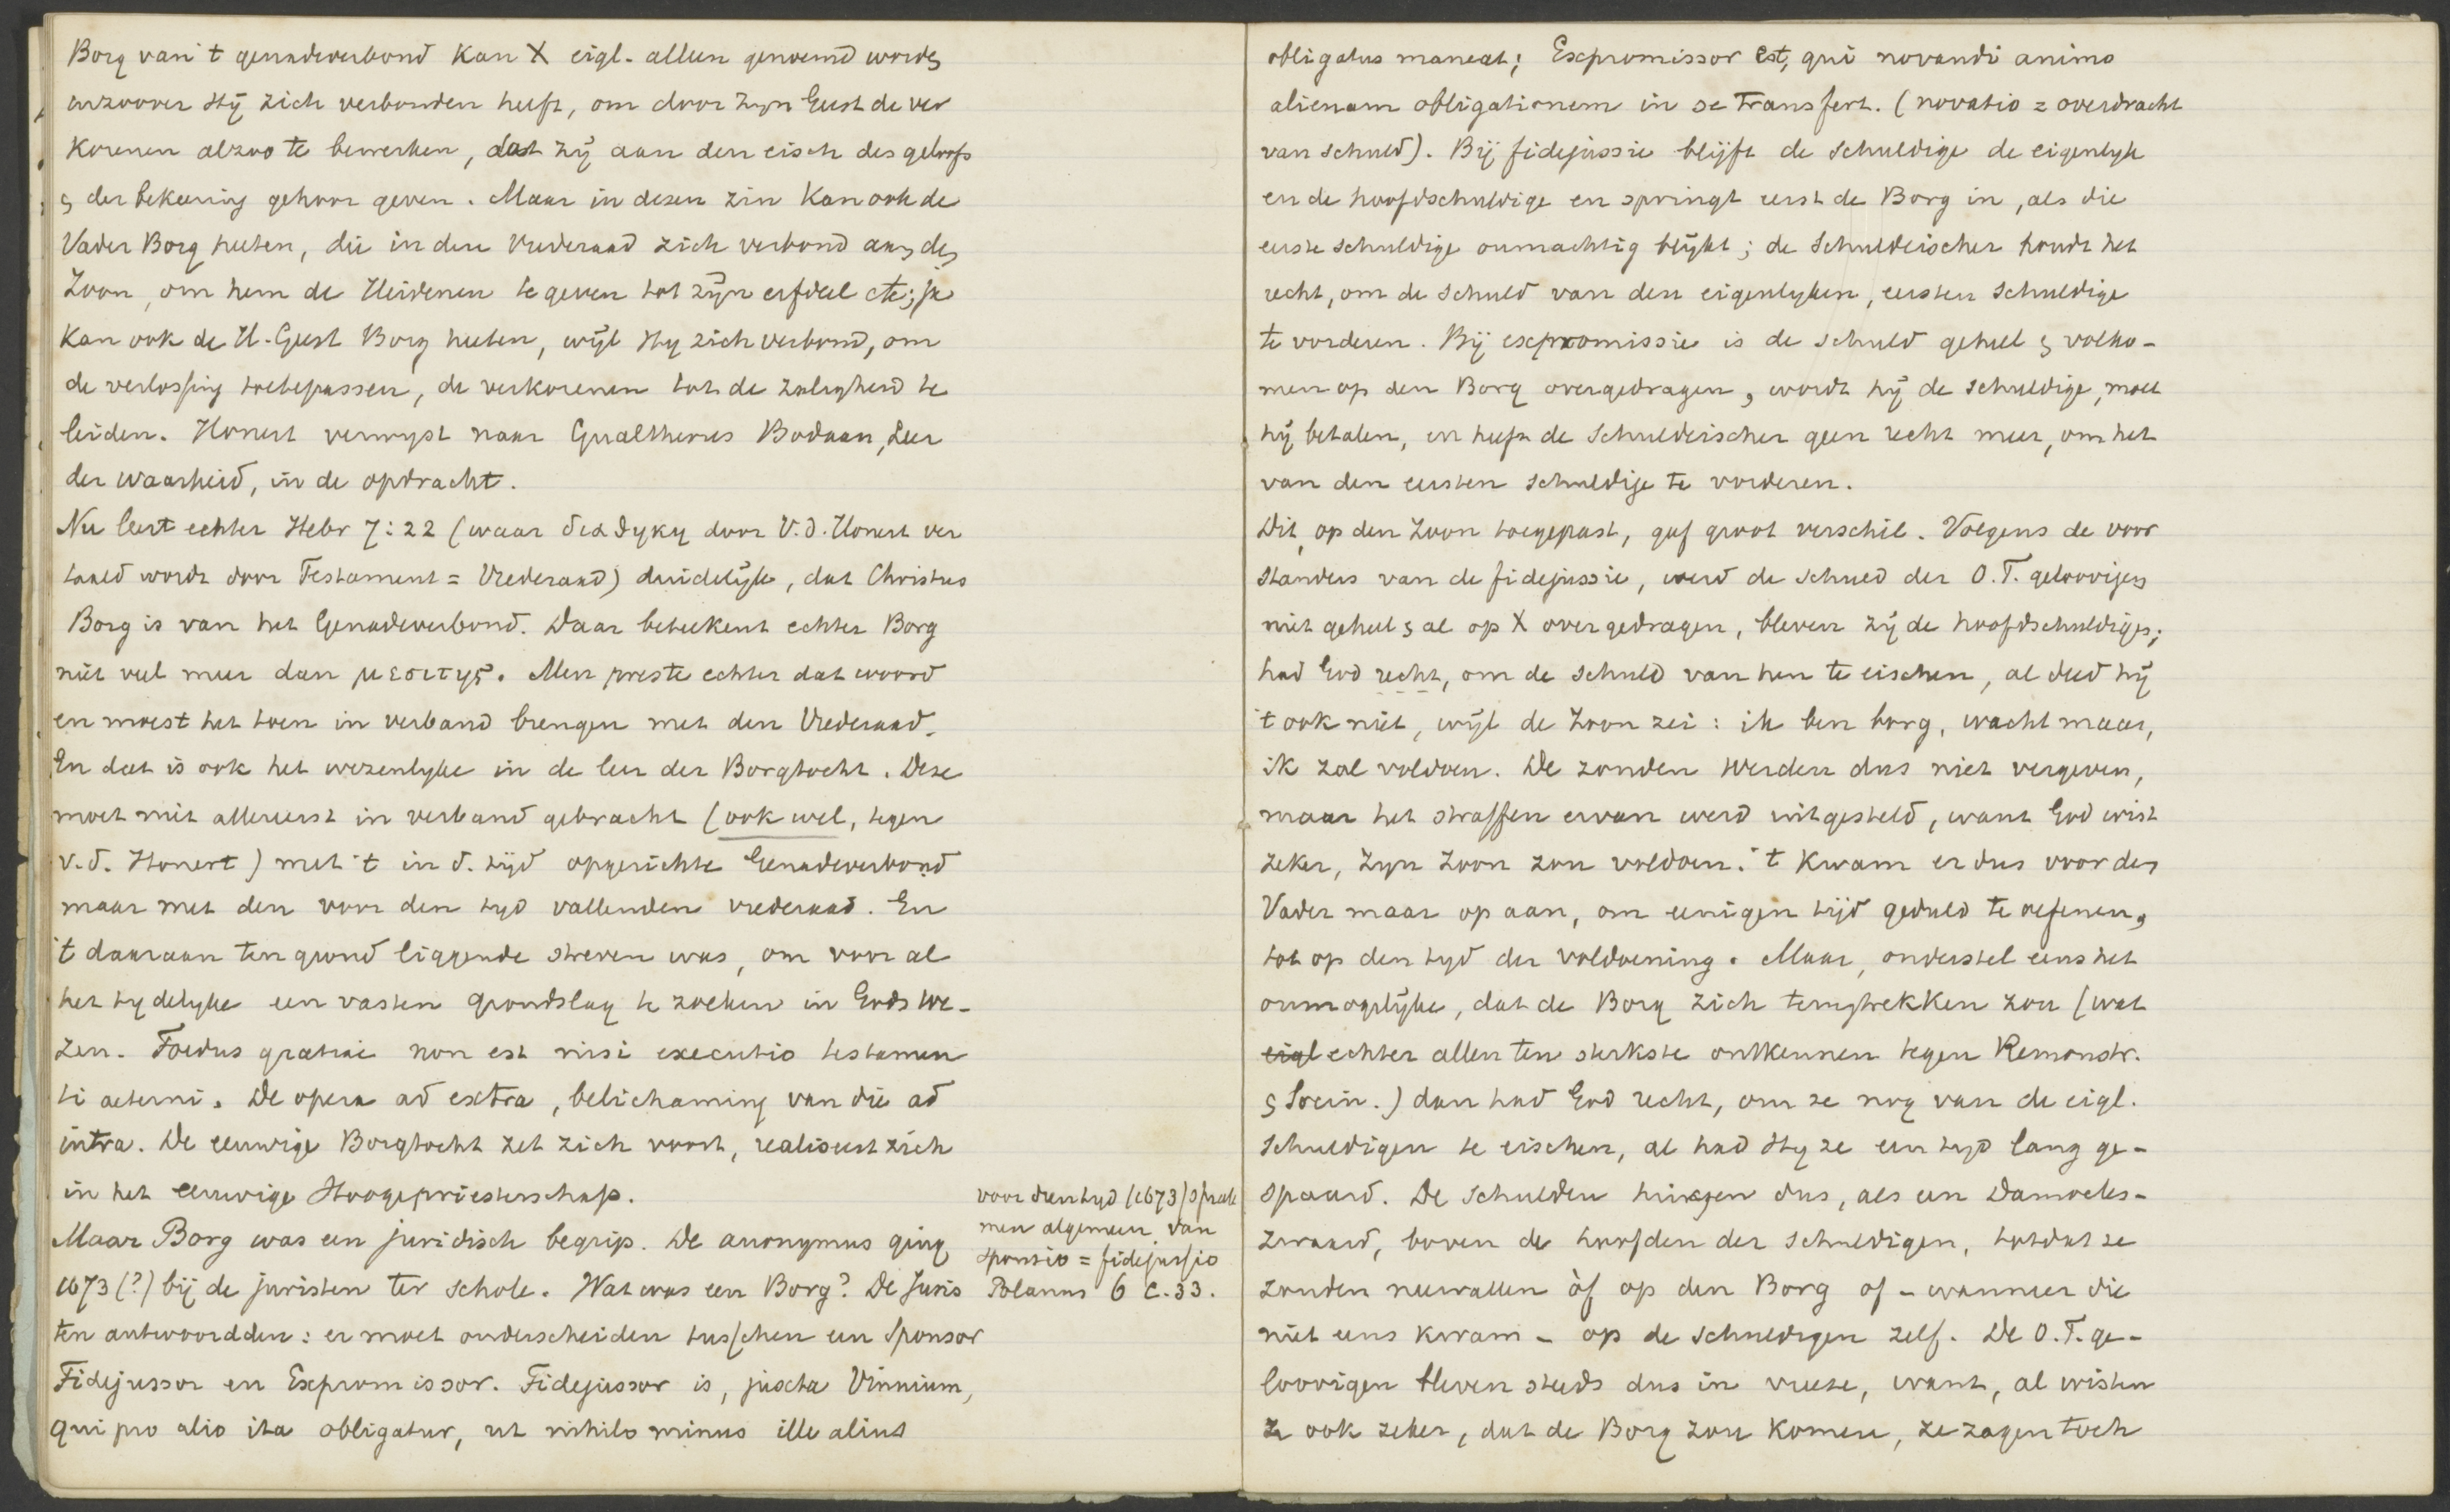 Borg van 't genadeverbond kan X eigl. alleen genoemd worden
inzoover Hij zich verbonden heeft, om door Zijn Geest de ver
korenen alzoo te bewerken, dat zij aan den eisch des geloofs
en der bekeering gehoor geven. Maar in dezen zin kan ook de
Vader Borg heeten, die in den Vrederaad zich verbond aan den
Zoon, om hem de Heidenen te geven tot zijn erfdeel etc; ja
kan ook de H. Geest Borg heeten, wijl Hij zich verbond, om
de verlossing toetepassen, de verkorenen tot de zaligheid te
leiden. Honert verwijst naar Gualtherus Bodaan, Leer
der waarheid, in de opdracht.
Nu leert echter Hebr 7:22 (waar διαθηκη door V. d. Honert ver
taald wordt door Testament = Vrederaad) duidelijk, dat Christus
Borg is van het Genadeverbond. Daar beteekent echter Borg
niet veel meer dan μεσιτης. Men preste echter dat woord
en moest het toen in verband brengen met den Vrederaad.
En dat is ook het wezenlijke in de leer der Borgtocht. Deze
moet niet allereerst in verband gebracht (ook wel, tegen
v. d. Honert) met 't in d. tijd opgerichte Genadeverbond
maar met den voor den tijd vallenden vrederaad. En
't daaraan ten grond liggende streven was, om voor al
het tijdelijke een vasten grondslag te zoeken in Gods We-
zen. Foedus gratiae non est nisi executio testamen
ti aeterni. De opera ad extra, belichaming van die ad
intra. De eeuwige Borgtocht zet zich voort, realiseert zich
in het eeuwige Hoogepriesterschap.
Maar Borg was een juridisch begrip. De anonymus ging
1673 (?) bij de juristen ter schole. Wat was een Borg? De Juris
ten antwoordden: er moet onderscheiden tusschen een Sponsor
Fidejussor en Expromissor. Fidejussor is, juxta Vinnium,
qui pro alio ita obligatur, ut nihilo minus ille alius
voor dien tijd (1673) sprak
men algemeen van
sponsio = fidejussio
Polanus 6 c. 33.
obligatus maneat; Expromissor est, qui novandi animo
alienam obligationem in se transfert. (novatio = overdracht
van schuld). Bij fidejussie blijft de schuldige de eigenlijke
en de hoofdschuldige en springt eerst de Borg in, als die
eerste schuldige onmachtig blijkt; de Schuldeischer houdt het
recht, om de schuld van den eigenlijken, eersten schuldige
te vorderen. Bij expromissie is de schuld geheel en volko-
men op den Borg overgedragen, wordt hij de schuldige, moet
hij betalen, en heeft de Schuldeischer geen recht meer, om het
van den eersten schuldige te vorderen.
Dit, op den Zoon toegepast, gaf groot verschil. Volgens de voor
standers van de fidejussie, werd de schuld der O. T. geloovigen
niet geheel en al op X overgedragen, bleven zij de hoofdschuldigen;
had God recht, om de schuld van hen te eischen, al deed hij
't ook niet, wijl de Zoon zei: ik ben borg, wacht maar,
ik zal voldoen. De zonden werden dus niet vergeven,
maar het straffen ervan werd uitgesteld, want God wist
zeker, Zijn Zoon zou voldoen. 't Kwam er dus voor den
Vader maar op aan, om eenigen tijd geduld te oefenen,
tot op den tijd der voldoening. Maar, onderstel eens het
onmogelijke, dat de Borg zich terugtrekken zou (wat
eigl echter allen ten sterkste ontkennen tegen Remonstr.
en Socin.) dan had God recht, om ze nog van de eigl.
schuldigen te eischen, al had Hij ze een tijd lang ge-
spaard. De schulden hingen dus, als een Damocles-
zwaard, boven de hoofden der schuldigen, totdat ze
zouden neervallen òf op den Borg of - wanneer die
niet eens kwam - op de schuldigen zelf. De O. T. ge-
loovigen bleven steeds dus in vreeze, want, al wisten
ze ook zeker, dat de Borg zou komen, ze zagen toch